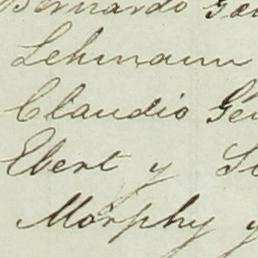 Bernardo
Lehmann
Claudio
Ebert y
Morphy y